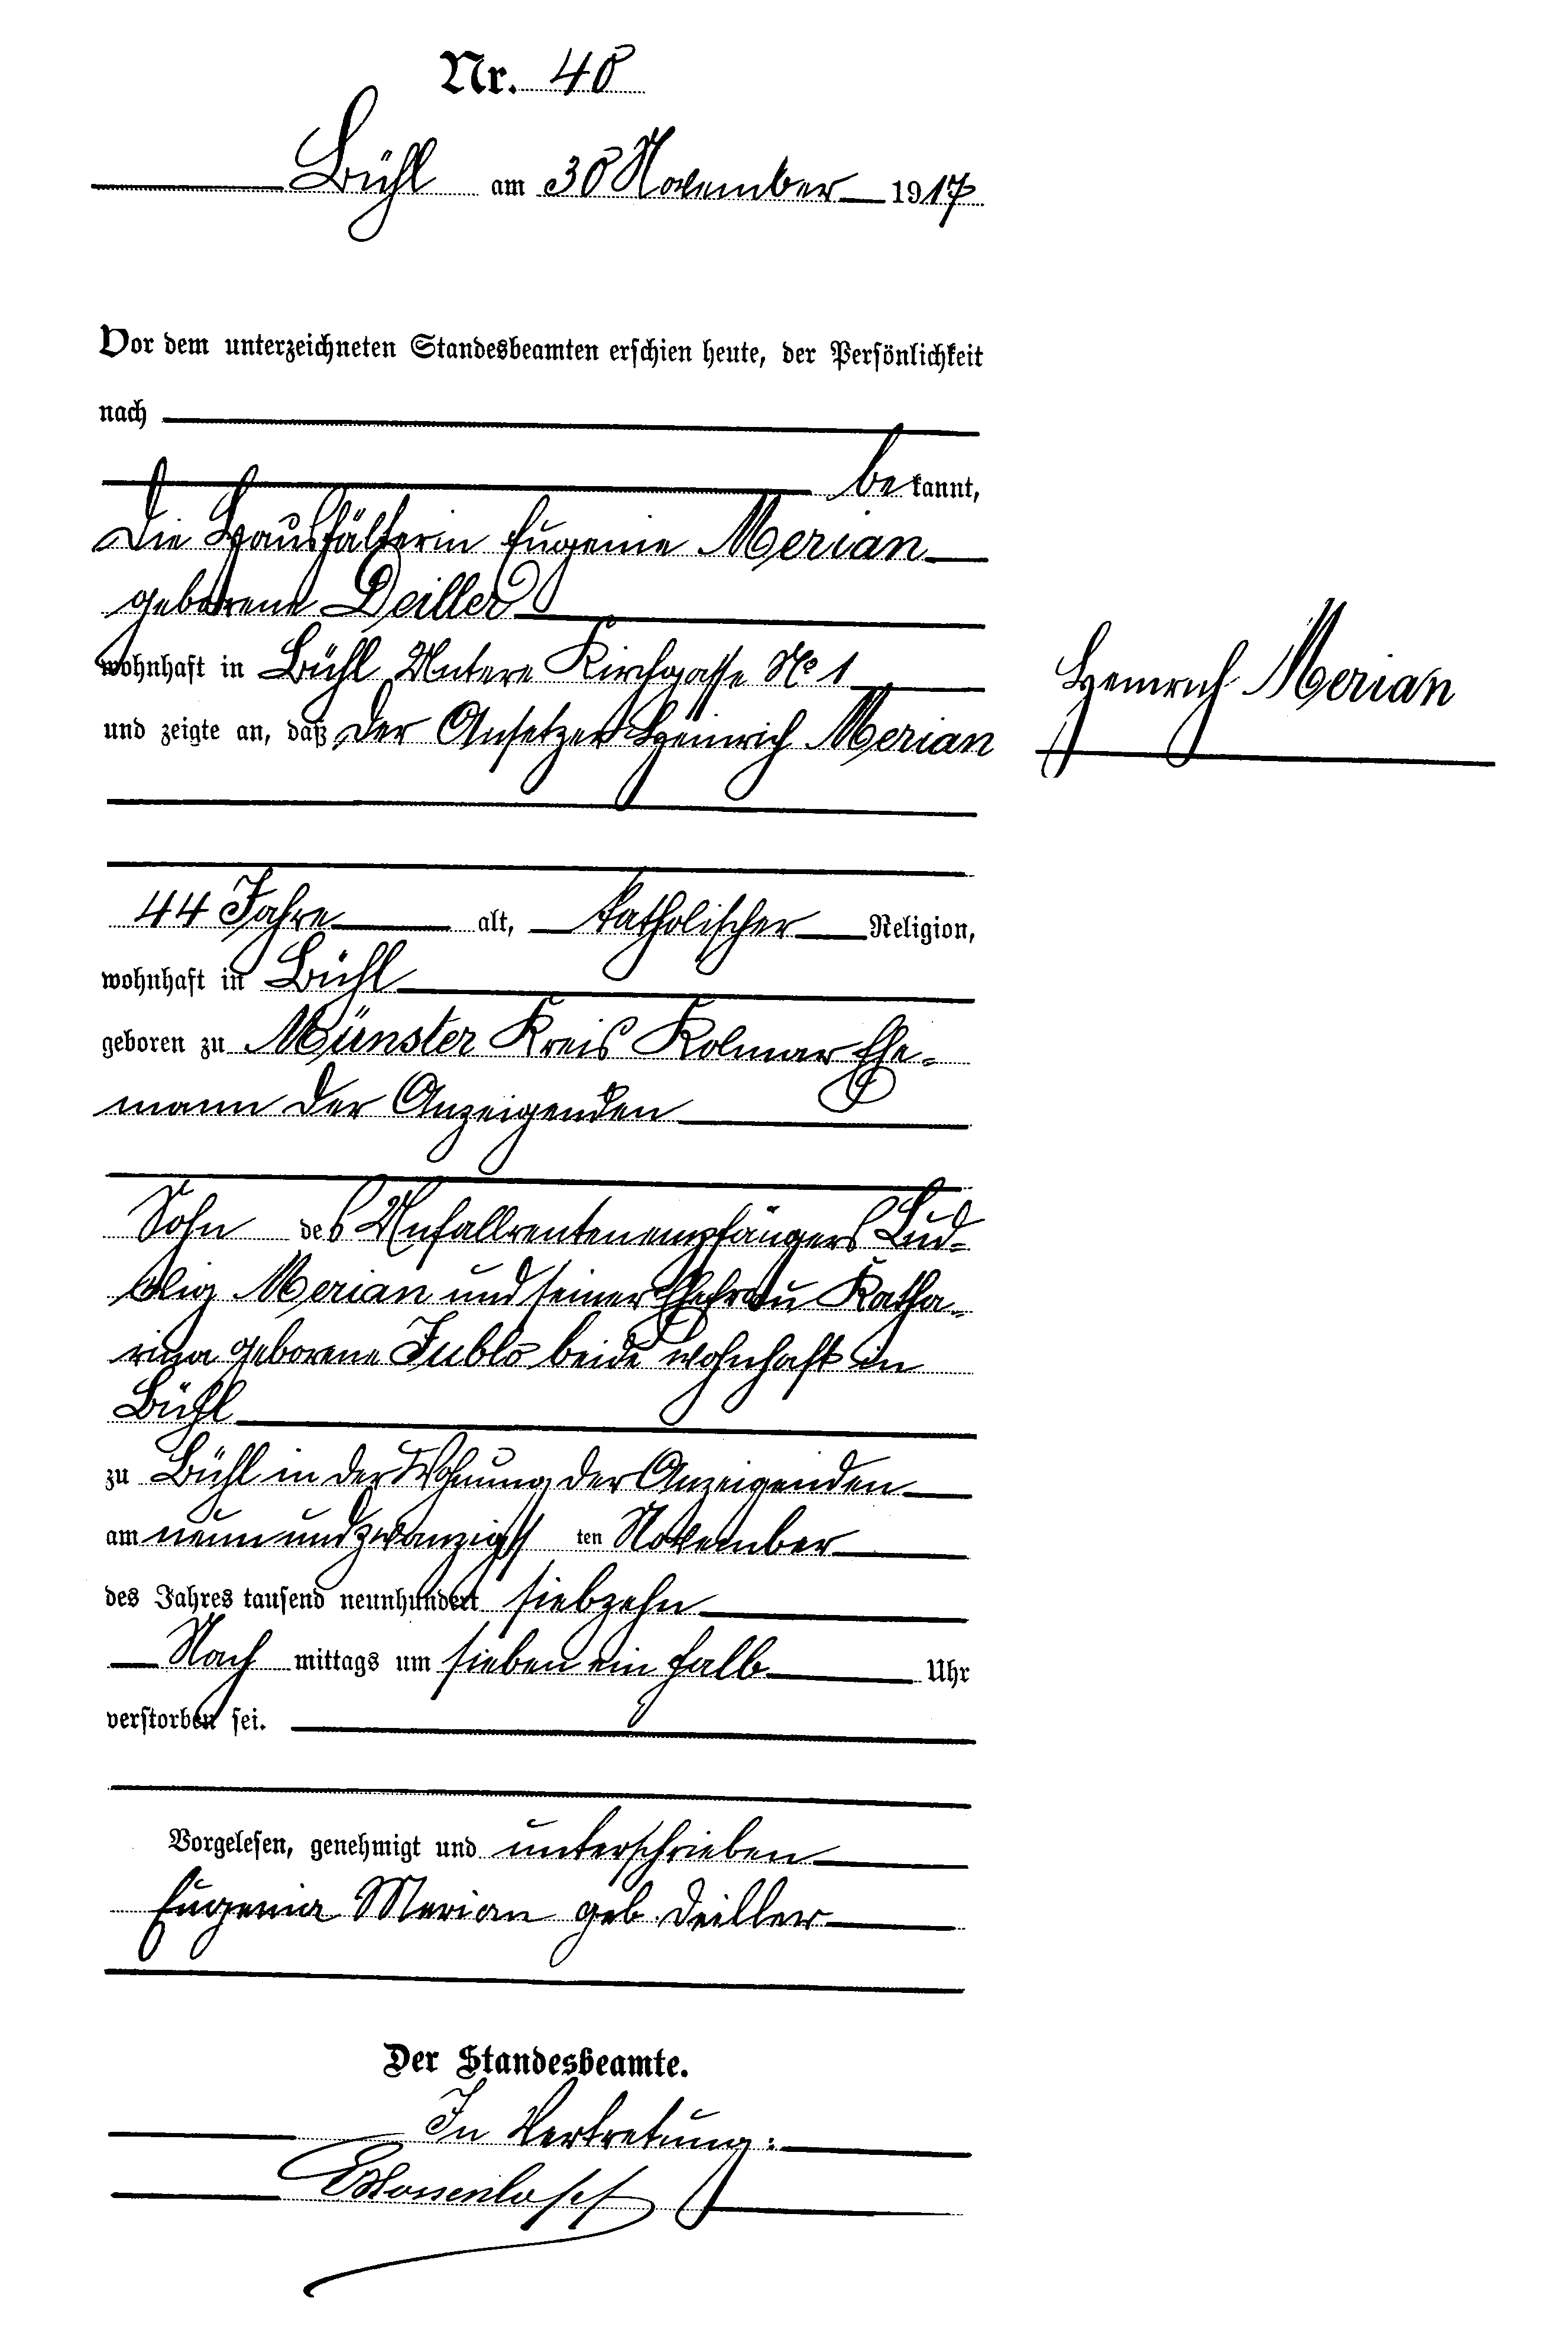 Nr. 40
Bühl am 30 November 1917
Vor dem unterzeichneten Standesbeamten erschien heute, der Persönlichkeit
nach
bekannt,
die Haushälterin Eugenie Merian
geborene Deiller
wohnhaft in Bühl Untere Kirchgasse No 1
und zeigte an, daß der Ansetzer Heinrich Merian
Heinrich Merian
44 Jahre alt, katholischer Religion,
wohnhaft in Bühl
geboren zu Münster Kreis Kolmar Ehe-
mann der Anzeigenden
Sohn des Unfallrentenempfängers Lud-
wig Merian und seiner Ehefrau Katha-
rina geborene beide wohnhaft in
Bühl
zu Bühl in der Wohnung der Anzeigenden
am neun und zwanzigsten November
des Jahres tausend neunhundert siebzehn
Nachmittags um sieben ein halb Uhr
verstorben sei.
Vorgelesen, genehmigt und unterschrieben
Eugenia Merian geb. Deiller
Der Standesbeamte.
In Vertretung: